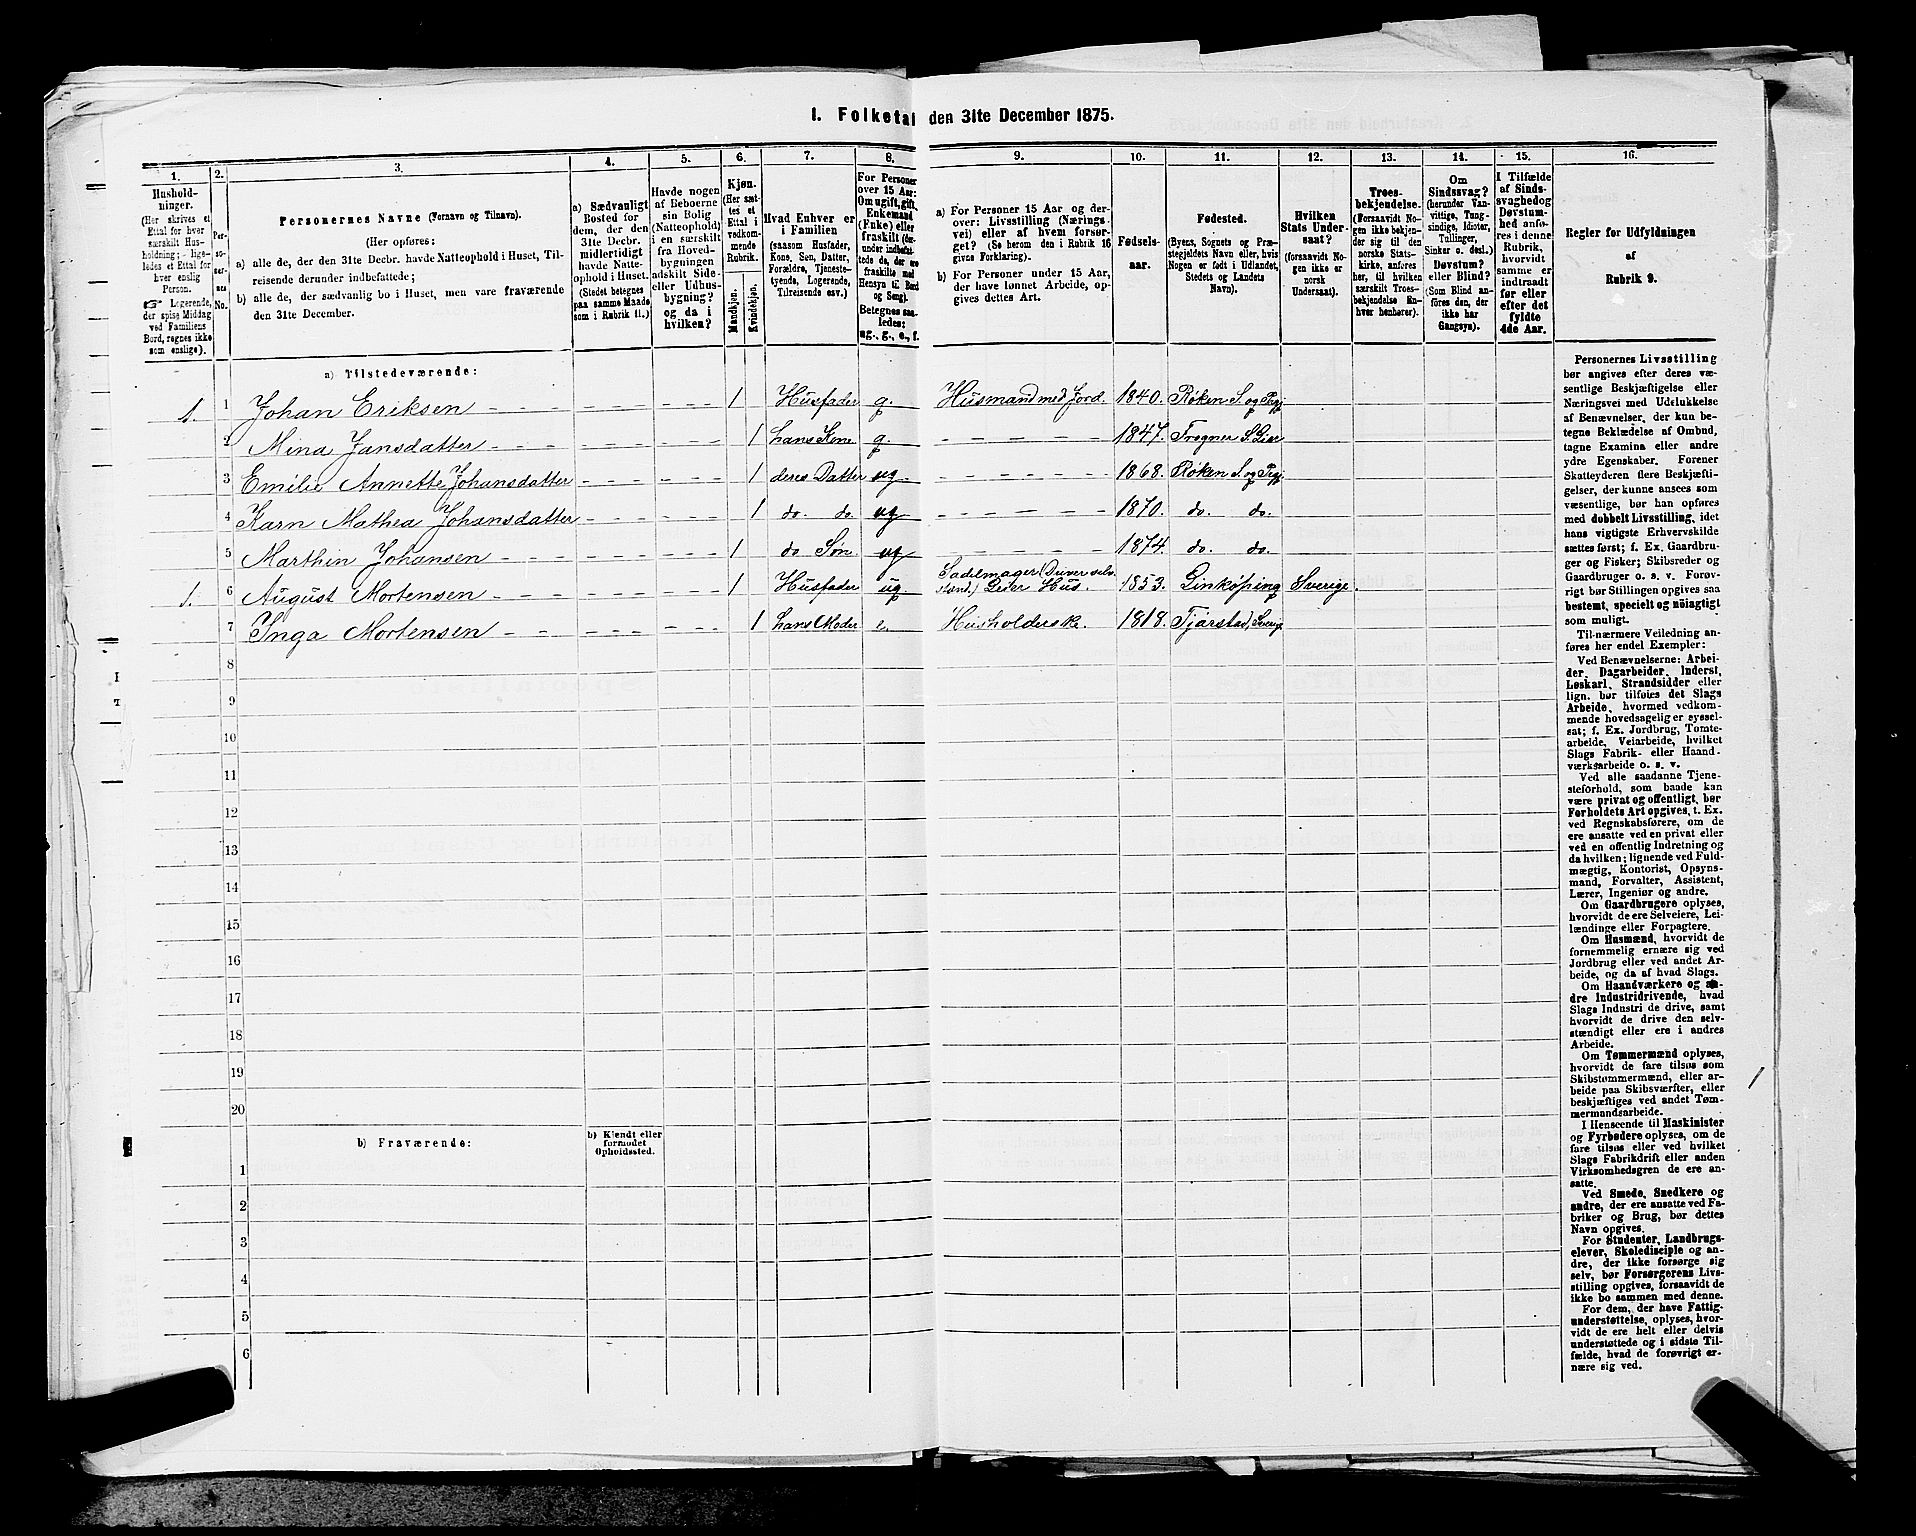 1. Folketal den 31te December 1875.
1.
Husholdninger.
(Her skrives et
Ettal for hver
særskilt Husholdning;
ligeledes et Ettal for
hver enslig
Person.
Logerende,
der spise Middag
ved Familiens
Bord, regnes ikke
som enslige).
2.
Personernes
No.
3.
Personernes Navne (Fornavn og Tilnavn).
(Her opføres:
a) alle de, der den 31te Decbr. havde Natteophold i Huset, Tilreisende derunder indbefattede;
b) alle de, der sædvanlig bo i Huset, men vare fraværende
den 31te December.
4.
a) Sædvanligt
Bosted for
dem, der den
31te Decbr.
midlertidigt
havde Natteophold i Huset.
(Stedet betegnes
paa samme Maade
som i Rubrik 11.)
5.
Havde nogen
af Beboerne
sin Bolig
(Natteophold)
i en særskilt
fra Hovedbygningen
adskilt Side-
eller Udhusbygning?
og da i
hvilken?
6.
Kjøn.
(Her sættes et
Ettal i
vedkommende
Rubrik.
Mandkjøn.
Kvindekjøn.
7.
Hvad Enhver er
i Familien
(saasom Husfader,
Kone, Søn, Datter,
Forældre, Tjenestetyende, Logerende,
Tilreisende osv.)
8.
For Personer
over 15 Aar:
Om ugift, gift,
Enkemand
(Enke) eller
fraskilt
Betegnes saaledes:
ug., g., e., f.
9.
a) For Personer 15 Aar og derover: Livsstilling (Næringsvei) eller af hvem forsørget? (Se herom den i Rubrik 16
givne Forklaring).
b) For Personer under 15 Aar,
der have lønnet Arbeide, opgives dettes Art.
10.
Fødselsaar.
11.
Fødested.
(Byens, Sognets og Præstegjeldets Navn eller, hvis
Nogen er født i Udlandet,
Stedets og Landets
Navn).
12.
Hvilken
Stats Undersaat?
(forsaavidt Nogen ikke er
norsk
Undersaat).
13.
Troesbekjendelse.
(Forsaavidt Nogen ikke bekjender sig til den
norske Statskirke, anføres
her, til hvilken
særskilt Troesbekjendelse Enhver henhører).
14.
Om
Sindssvag?
(herunder Vanvittige, Tungsindige, Idioter,
Tullinger,
Sinker o. desl.)
Døvstum?
eller Blind?
(Som Blind anføres den, der
ikke har
Gangsyn).
15.
I Tilfælde
af Sindssvaghed og
Døvstumhed anføres i denne
Rubrik,
hvorvidt
samme er
indtraadt
før eller
efter det
fyldte
4de Aar.
16.
Regler for Udfyldningen
af
Rubrik 9.
a) Tilstedeværende:
1. 1 Johan Eriksen 1 Husfader g. Husmand med Jord. 1840. Røken S. og Pgj.
2 Mina Jansdatter 1 hans Kone g. 1847. Frogner S. Lier
3 Emilie Annette Johansdatter 1 deres Datter ug 1868. Røken S. og Pgj.
4 Karn Mathea Johansdatter 1 do. do. ug 1870. do. do.
5 Marthin Johansen 1 do Søn. ug 1874. do. do.
1. 6 August Mortensen 1 Husfader ug Sadelmager (Driver selvstænd.) Leier Hus. 1853. Linköping Sverige.
7 Inga Mortensen 1 hans Moder e. Husholderske. 1818. Tjärstad, Sverig
8
9
10
11
12
13
14
15
16
17
18
19
20
b) Fraværende:
b) Kjendt eller
formodet
Opholdssted.
1
2
3
4
5
6
Personernes Livsstilling
bør angives efter deres væsentlige Beskjæftigelse eller
Næringsvei med Udelukkelse
af Benævnelser, der kun betegne Beklædelse af Ombud,
tagne Examina eller andre
ydre Egenskaber. Forener
Skatteyderen flere Beskjæftigelser, der kunne ansees som
væsentlige, bør han opføres
med dobbelt Livsstilling, idet
hans vigtigste Erhvervskilde
sættes først; f. Ex. Gaardbruger og Fisker; Skibsreder og
Gaardbruger o. s. v. Forøvrigt bør Stillingen opgives saa
bestemt, specielt og nøiagtigt
som muligt.
Til nærmere Veiledning anføres her endel Exempler:
Ved Benævnelserne: Arbeider, Dagarbeider, Inderst,
Løskarl, Strandsidder eller
lign. bør tilføies det Slags
Arbeide, hvormed vedkommende hovedsagelig er sysselsat; f. Ex. Jordbrug, Tomtearbeide, Veiarbeide, hvilket
Slags Fabrik- eller Haandværksarbeide o. s. v.
Ved alle saadanne Tjenesteforhold, som baade kan
være privat og offentligt, bør
Forholdets Art opgives, t. Ex.
ved Regnskabsførere, om de
ere ansatte ved en privat eller
ved en offentlig Indretning og
da hvilken; lignende ved Fuldmægtig, Kontorist, Opsynsmand, Forvalter, Assistent,
Lærer, Ingeniør og andre.
Om Gaardbrugere oplyses,
hvorvidt de ere Selveiere, Leilændinge eller Forpagtere.
Om Husmænd, hvorvidt de
fornemmelig ernære sig ved
Jordbrug eller ved andet Arbeide, og da af hvad Slags.
Om Haandværkere og andre Industridrivende, hvad
Slags Industri de drive, samt
hvorvidt de drive den selvstændigt eller ere i andres
Arbeide.
Om Tømmermænd oplyses,
hvorvidt de fare tilsøs som
Skibstømmermænd, eller arbeide paa Skibsværfter, eller
beskjæftiges ved andet Tømmermandsarbeide.
I Henseende til Maskinister
og Fyrbødere oplyses, om de
fare tilsøs eller ved hvilket
Slags Fabrikdrift eller anden
Virksomhedsgren de ere ansatte.
Ved Smede, Snedkere og
andre, der ere ansatte ved Fabriker og Brug, bør dettes
Navn opgives.
For Studenter, Landbrugselever, Skoledisciple og andre, der ikke forsørge sig
selv, bør Forsørgerens Livsstilling opgives, forsaavidt de
ikke bo sammen med denne.
For dem, der have Fattigunderstøttelse, oplyses, hvorvidt de ere helt eller delvis
understøttede og i sidste Tilfælde, hvad de forøvrigt ernære sig ved.